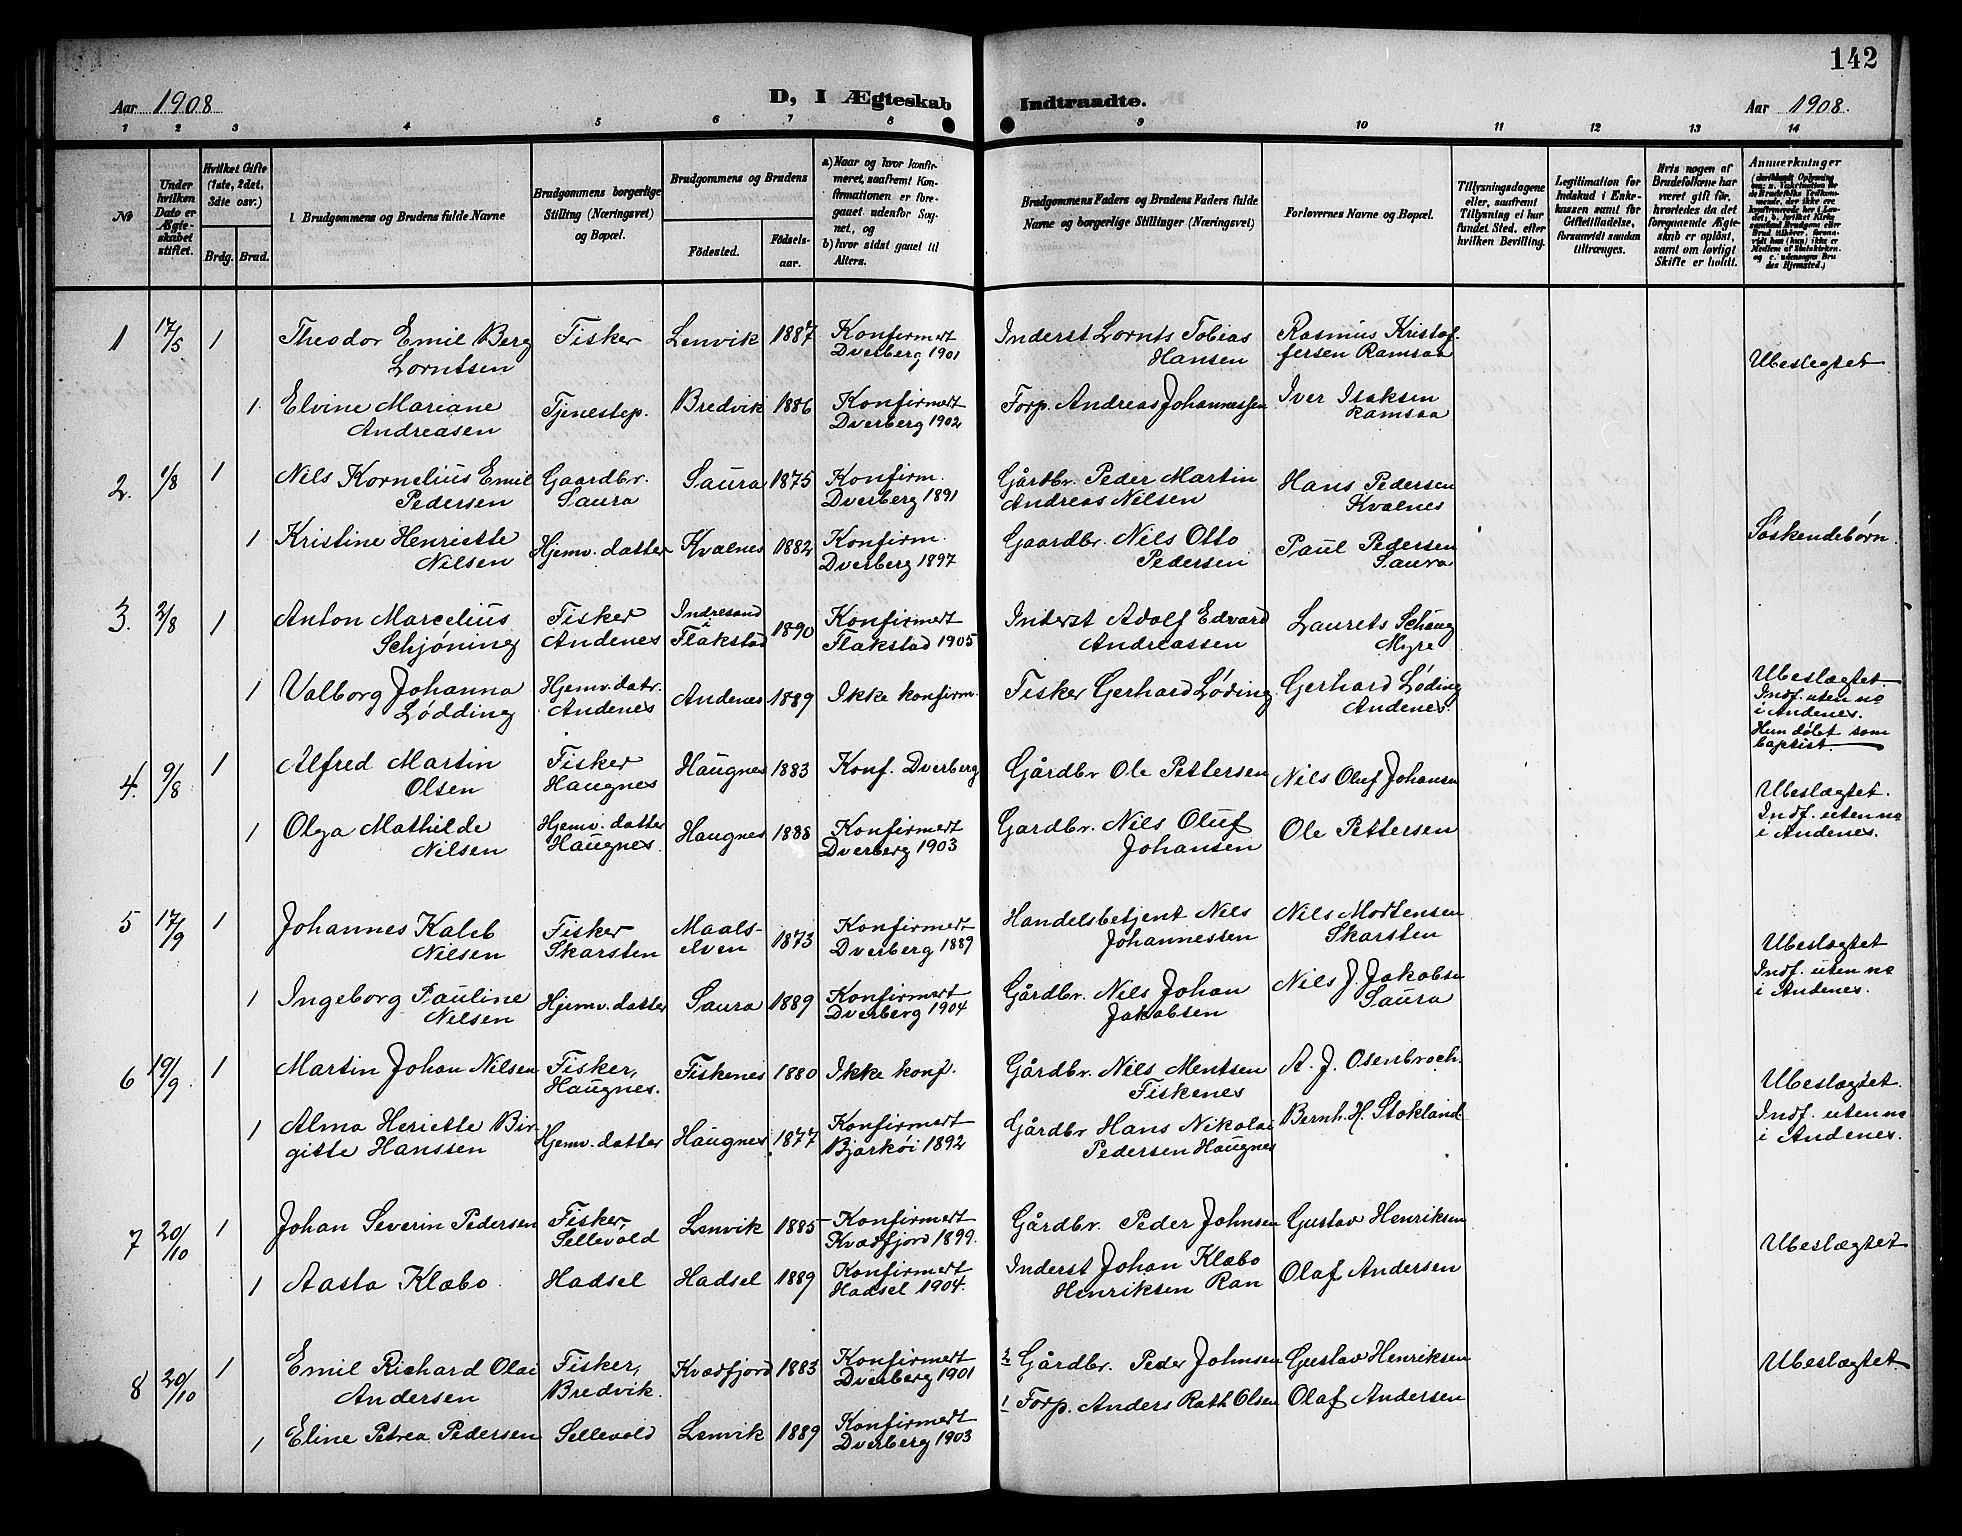 142
Aar 1908
D, I Ægteskab
Indtraadte.
Aar 1908.
1 2 3 4 5 6 7 8 9 10 11 12 13 14
№
Under hvilken Dato er Ægteskabet stiftet.
Hvilket Gifte (1ste, 2det, 3die osv.)
Brdg. Brud.
Brudgommens og Brudens fulde Navne
Brudgommens borgerlige Stilling (Næringsvei) og Bopæl.
Brudgommens og Brudens
Födested.
Födselsaar.
a) Naar og hvor konfirmeret, saafremt Konfirmationen er foregaaet udenfor Sognet, og
b) hvor sidst gaaet til Alters.
Brudgommens Faders og Brudens Faders fulde Navne og borgerlige Stillinger (Næringsvei)
Forlovernes Navne og Bopæl.
Tillysningsdagene eller, saafremt Tillysning ei har fundet Sted, efter hvilken Bevilling.
Legitimation for Indskud i Enkekassen samt for Giftetilladelse, forsaavidt saadan tiltrænges.
Hvis nogen af Brudefolkene har været gift før, hvorledes da det foregaaende Ægteskab er opløst, samt om lovligt Skifte er holdt.
Anmerkninger
1 17/5 1 Theodor Emil Berg Fisker Lenvik 1887 Konfirmert Inderst Lornts Tobias Rasmus Kristof-
Lorntsen Dverberg 1901 Hansen fersen Ramsaa Ubeslegtet
1 Elvine Mariane Tjenestep. Bredvik 1886 Konfirmert Forp. Andreas Johannessen Iver Isaksen
Andreasen Dverberg 1902 Ramsaa
2. 1/8 1 Nils Kornelius Emil Gaardbr. Saura 1875 Konfirm. Gårdbr. Peder Martin Hans Pedersen
Pedersen Saura Dverberg 1891 Andreas Nilsen Kvalnes
1 Kristine Henriette Hjemv. datter Kvalnes 1882 Konfirm. Gaardbr. Nils Otto Paul Pedersen Søskendebørn
Nilsen Dverberg 1897 Pedersen Saura
3. 2/8 1 Anton Marcelius Fisker Indresand i 1890 Konfirmert Inderst Adolf Edvard Laurets Schaug
Schjøning Andenes Flakstad Flakstad 1905 Andreassen Myre
1 Valborg Johanna Hjemv. datr. Andenes 1889 Ikke konfirm. Fisker Gerhard Løding Gerhard Løding Ubeslægtet.
Lødding Andenes Andenes. Indf. uten no
i Andenes.
Hun døbt som
baptist.
4. 9/8 1 Alfred Martin Fisker Haugnes 1883 Konf. Dverberg Gårdbr Ole Pettersen Nils Oluf Johansen
Olsen Haugnes Ubeslægtet.
1 Olga Mathilde Hjemv. datter Haugnes 1888 Konfirmert Gardbr. Nils Oluf Ole Pettersen Indf. uten no
Nilsen Haugnes. Dverberg 1903 Johansen i Andenes.
5 17/9 1 Johannes Kaleb Fisker Maals- 1873 Konfirmert Handelsbetjent Nils Nils Mortensen
Nilsen Skarsten elven Dverberg 1889 Johannessen Skarsten Ubeslægtet
1 Ingeborg Pauline Hjemv. datter Saura 1889 Konfirmert Gårdbr. Nils Johan Nils J. Jakobse Indf. uten no
Nilsen Dverberg 1904 Jakobsen Saura i Andenes.
6 19/9 1 Martin Johan Nilsen Fisker, Fiskenes 1880 Ikke konf. Gårdbr. Nils Mentsen A. J. Osenbroch.
Haugnes. Fiskenes Ubeslægtet.
1 Alma Heriette Bir- Hjemv. datter Haugnes 1877 Konfirmert Gårdbr Hans Nikolai Bernh. H. Stokland. Indf. uten no
gitte Hanssen Bjarkøi 1892 Pedersen Haugnes i Andenes.
7 20/10 1 Johan Severin Pedersen Fisker, Lenvik 1885 Konfirmert Gårdbr. Peder Johnsen Gustav Henriksen
Sellevold Kvædfjord 1899. Ubeslægtet
1 Aasta Klæbo Hadsel Hadsel 1889 Konfirmert Inderst Johan Klæbo Olaf Andersen
Hadsel 1904. Henriksen Ran
8 20/10 1 Emil Richard Olai Fisker, Kvædfjord 1883 Konfirmert 2 Gårdbr. Peder Johnsen Gustav Henriksen Ubeslægtet.
Andersen Bredvik. Dverberg 1901 1 Forp. Anders Rath Olsen Olaf Andersen
1 Eline Petrea Pedersen Sellevold Lenvik 1889 Konfirmert
Dverberg 1903